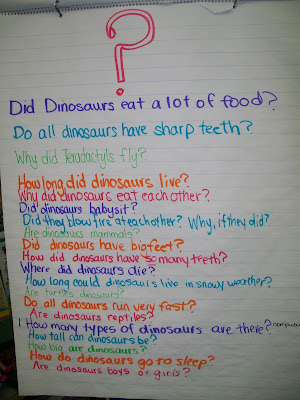 ?
Did Dinosaurs eat a lot of food?
Do all dinosaurs have sharp teeth?
Why did Teradactyls fly?
How long did dinosaurs live?
Why did dinosaurs eat each other?
Did dinosaurs babysit?
Did they blow fire at each other? Why, if they did?
Are dinosaurs mammals?
Did dinosaurs have big feet?
How did dinosaurs have so many treeth?
Where did dinosaurs die?
How long could dinosaurs live in snowy weather?
Are turtles dinosaurs?
Do all dinosaurs run very fast?
Are dinosaurs reptiles?
How many types of dinosaurs are there?
How tall can dinosaurs be?
How big are dinosaurs?
How do dinosaurs go to sleep?
Are dinosaurs boys or girls?